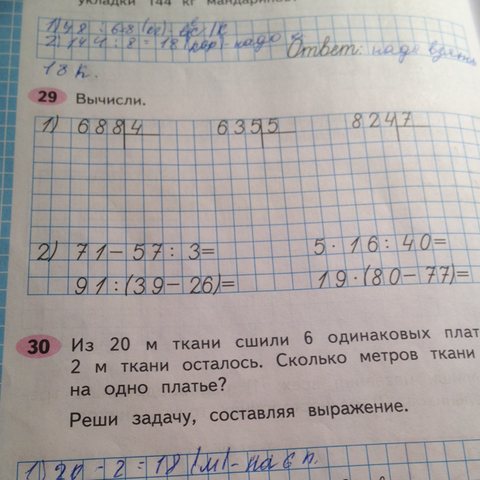 укладки 144 кг мандаринов?
1) 48 : 6 = 8 (кг)
2) 144 : 8 = 18 (кор) - надо
Ответ: надо взять
18 к.
29 Вычисли.
1) 688|4 635|5 824|7
2) 71 - 57 : 3 = 5 · 16 : 40 =
91 : (39 - 26) = 19 · (80 - 77) =
30 Из 20 м ткани сшили 6 одинаковых плат
2 м ткани осталось. Сколько метров ткани
на одно платье?
Реши задачу, составляя выражение.
1) 20 - 2 = 18 (м) - на 6 п.